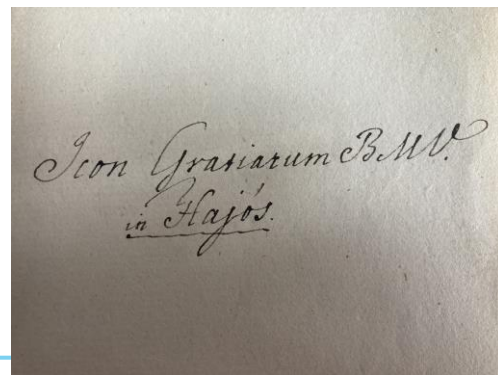 Icon Gratiarum B.M.V.
in Hajós.